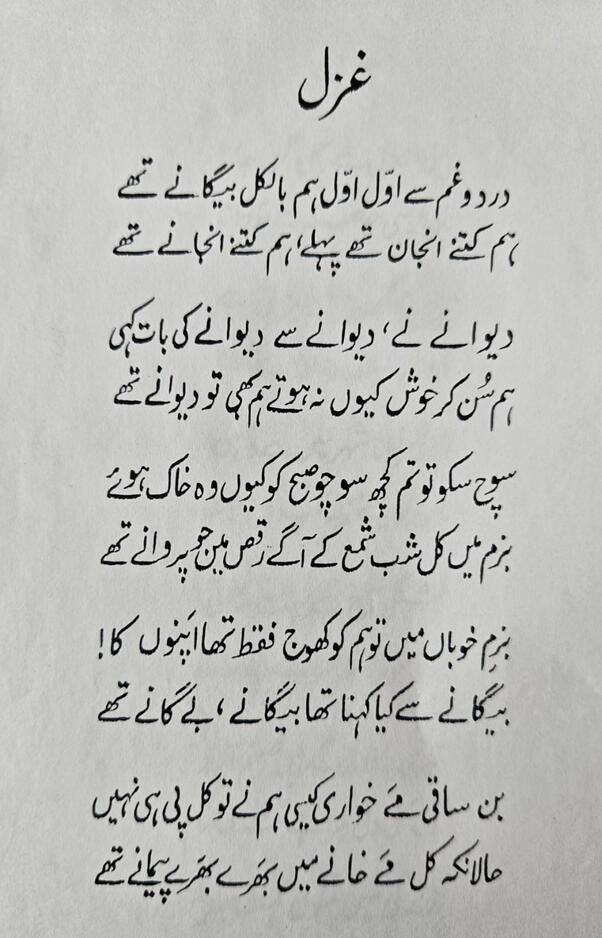 غزل
درد و غم سے اوّل اوّل ہم بالکل بیگانے تھے
ہم کتنے انجان تھے پہلے، ہم کتنے انجانے تھے
دیوانے نے، دیوانے سے دیوانے کی بات کہی
ہم سُن کر خوش کیوں نہ ہوتے ہم بھی تو دیوانے تھے
سوچ سکو تو تم کچھ سوچو صبح کو کیوں وہ خاک ہوئے
بزم میں کل شب شمع کے آگے رقص میں جو پروانے تھے
بزمِ خوباں میں تو ہم کو کھوج فقط تھا اپنوں کا!
بیگانے سے کیا کہنا تھا بیگانے، بے گانے تھے
بن ساقی مَے خواری کیسی ہم نے تو کل پی ہی نہیں
حالانکہ کل مَے خانے میں بھَرے بھَرے پیمانے تھے